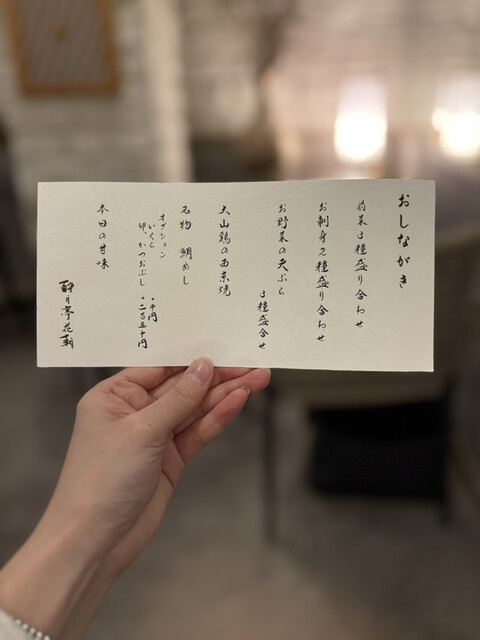 おしながき
前菜3種盛り合わせ
お刺身2種盛り合わせ
お野菜の天ぷら
3種盛合せ
大山鶏の西京焼
名物 鯛めし
オプション
いくら ・千円
卵、かつおぶし ・二百五十円
本日の甘味
酔月亭花朝